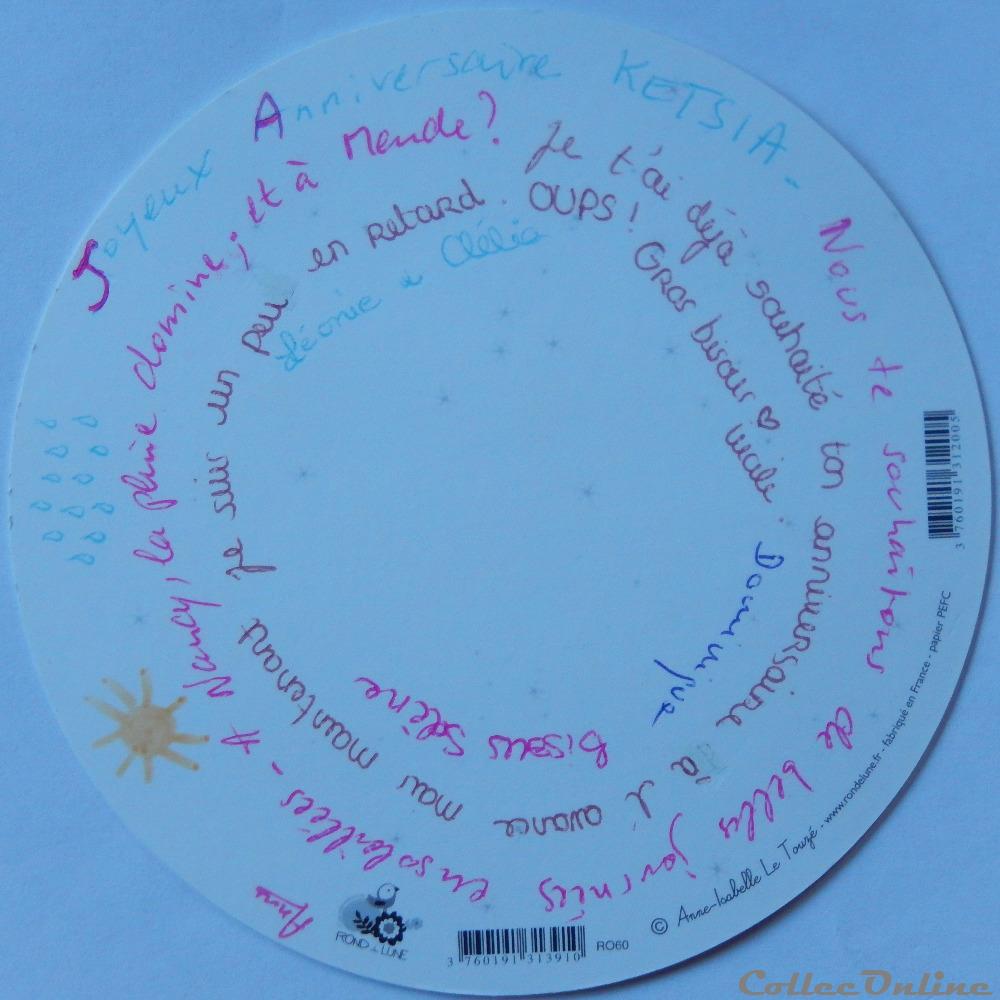 Joyeux Anniversaire KETSIA -
Nous te souhaitons de belles journées ensoleillées - A Nancy, la pluie domine; et à Mende ?
Anne
Je t'ai déjà souhaité ton anniversaire à l'avance mais maintenant je suis un peu en retard. OUPS ! Gros bisous ♡
Dominique
bisous Solène
Léonie & Clélia
3 760191 312005
3 760191 313910
RO60
ROND de LUNE
© Anne-Isabelle Le Touzé - www.rondelune.fr - fabriqué en France - papier PEFC
CollecOnline